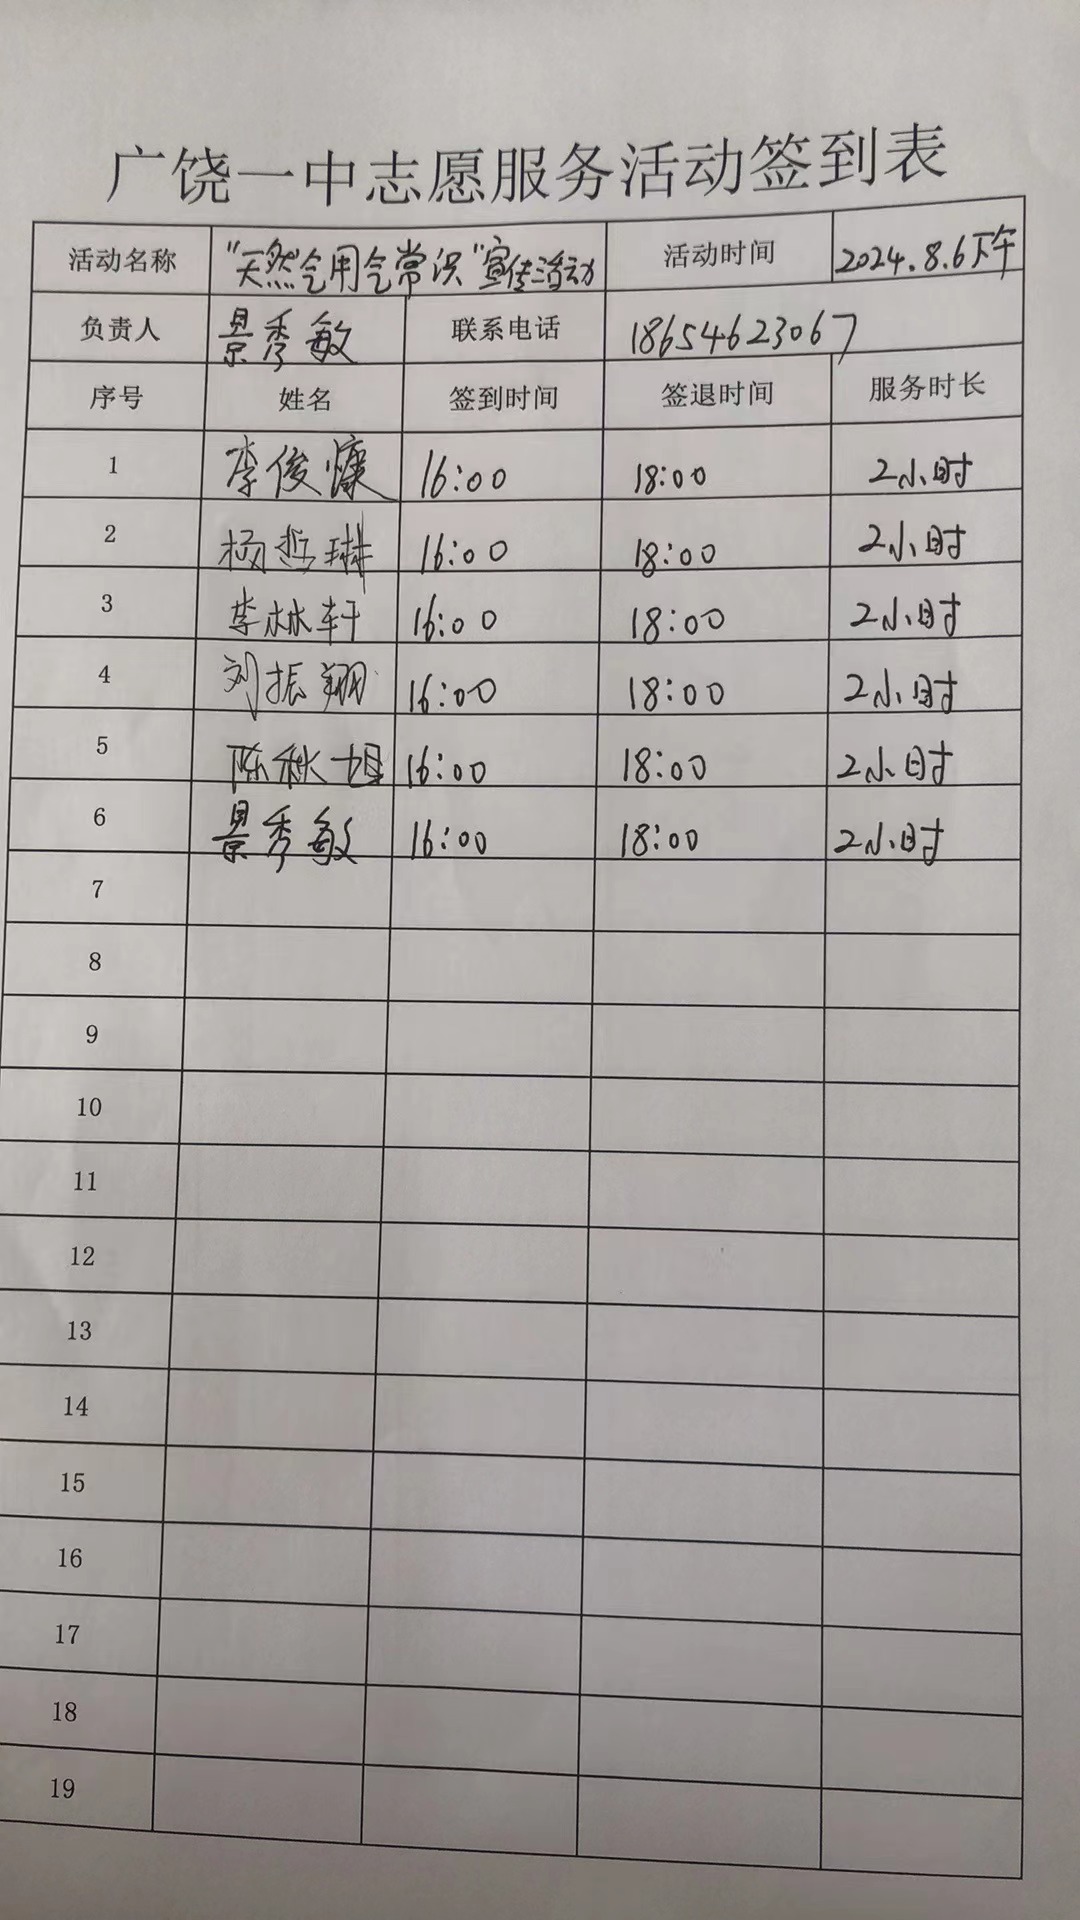 广饶一中志愿服务活动签到表
活动名称 "天然气用气常识"宣传活动 活动时间 2024.8.6下午
负责人 景秀敏 联系电话 18654623067
序号 姓名 签到时间 签退时间 服务时长
1 李俊慷 16:00 18:00 2小时
2 杨哲琳 16:00 18:00 2小时
3 李林轩 16:00 18:00 2小时
4 刘振翔 16:00 18:00 2小时
5 陈秋 16:00 18:00 2小时
6 景秀敏 16:00 18:00 2小时
7
8
9
10
11
12
13
14
15
16
17
18
19